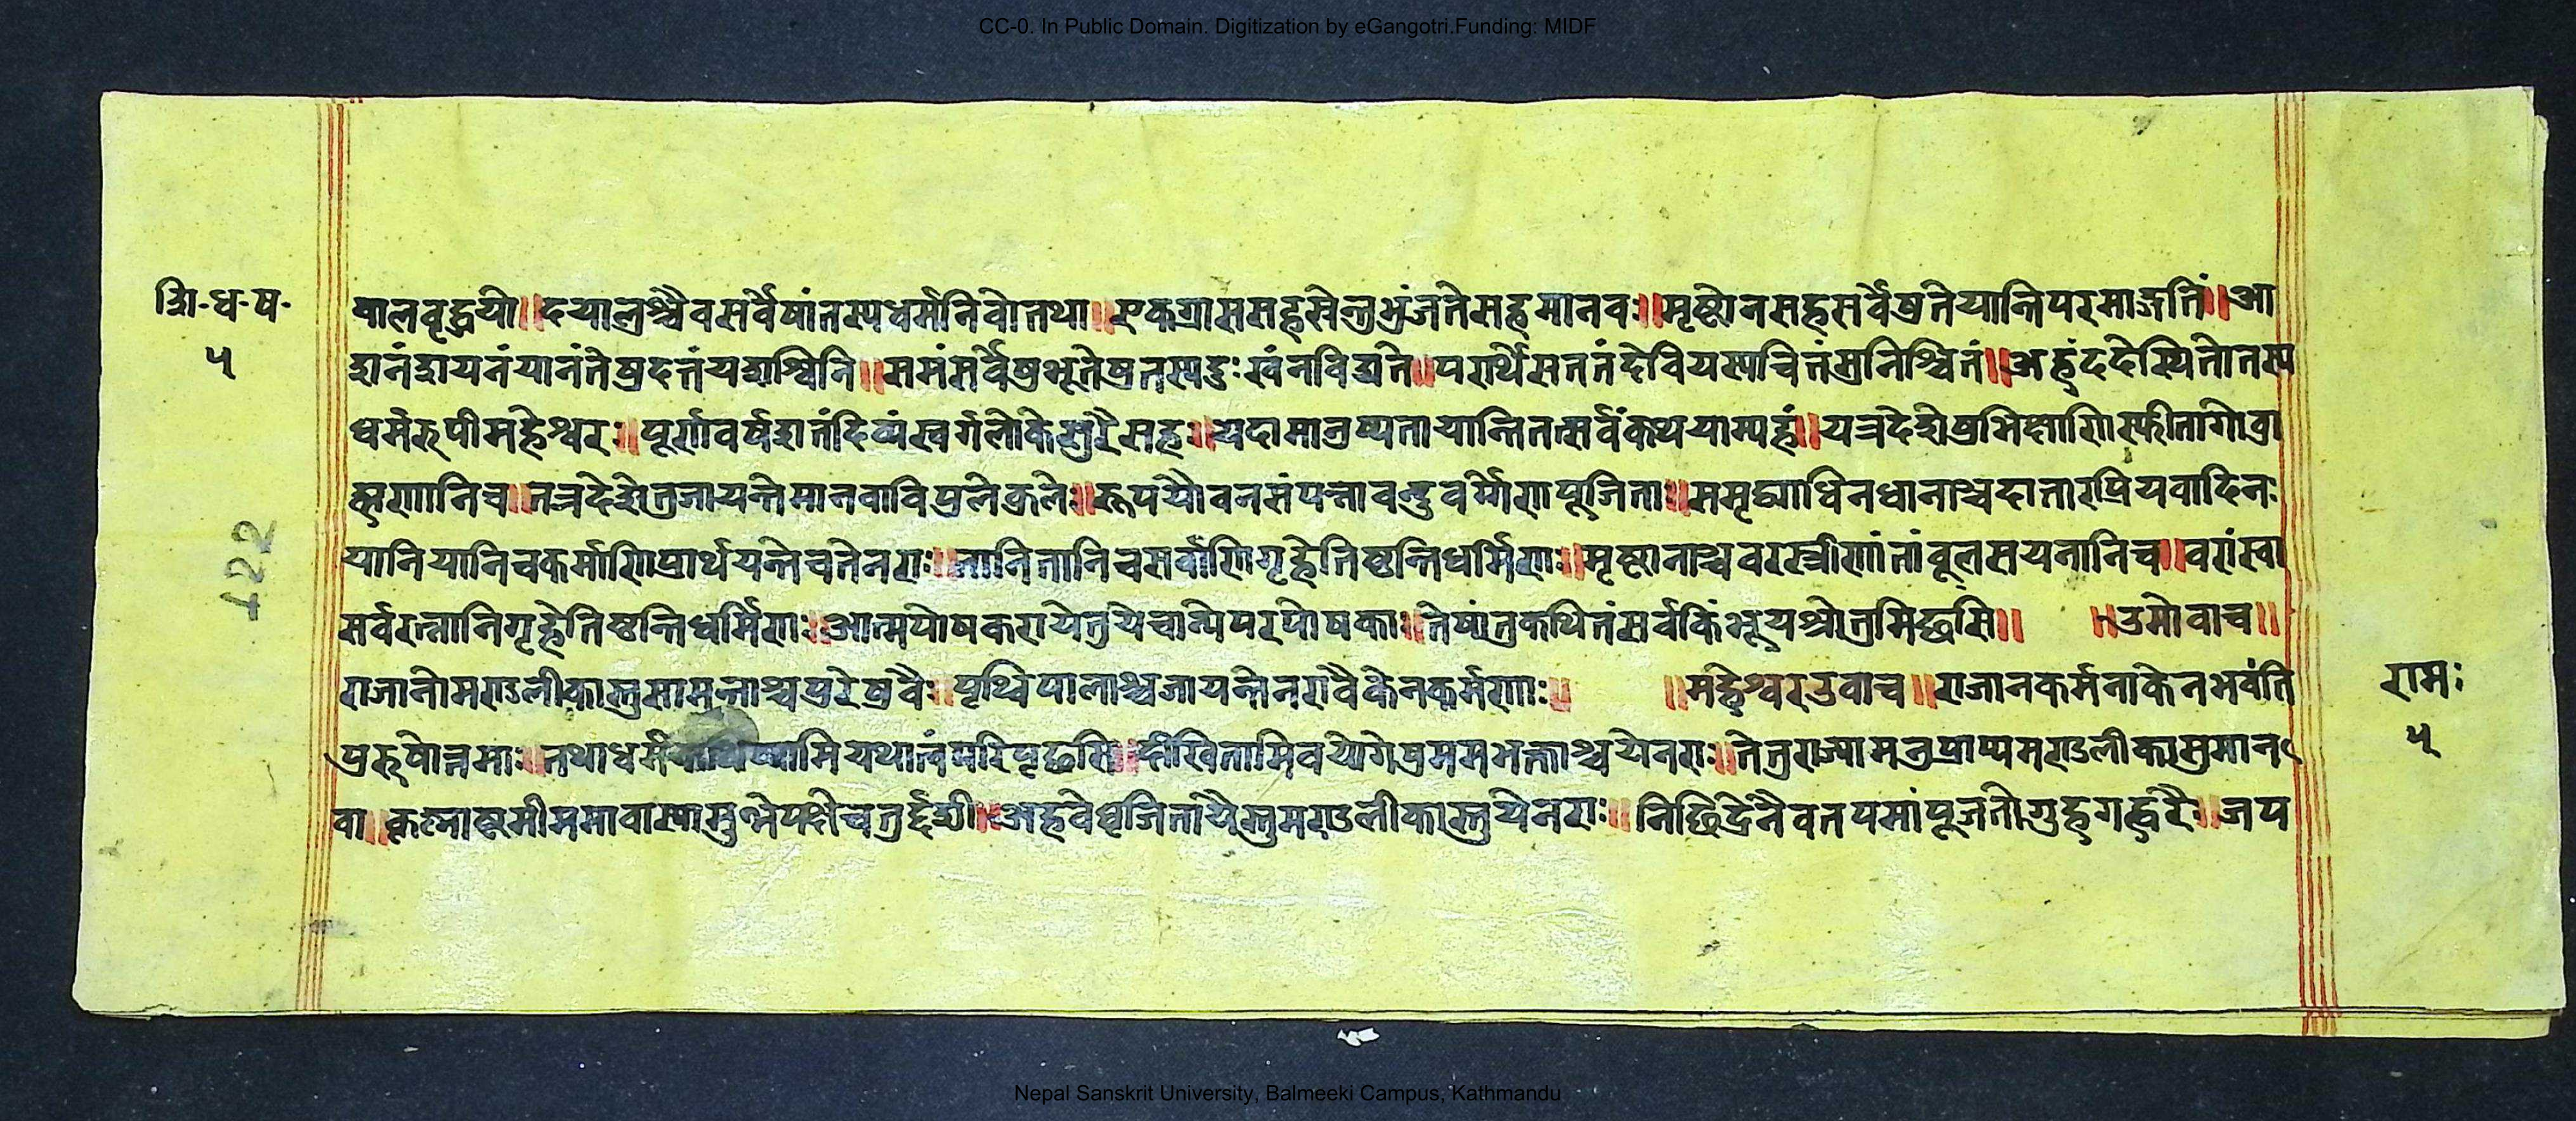 CC-0. In Public Domain. Digitization by eGangotri.Funding: MIDF
शि-ध-ष-
५
बालवृद्धयो॥दयालुश्चैवसर्वेषांतस्यधर्मोनिबोतथा॥एकग्राससहस्रेनभुंजतेसहमानवः॥मृष्टोनसहसर्वेषुतेयान्तिपरमाङ्गतिं॥आ
शनंशयनंयानंतेषुदत्तंयशश्विनि॥समंसर्वेषुभूतेषुतस्यदुःखंनविद्यते॥परार्थेसततंदेवियस्यचित्तंसुनिश्चितं॥अहंददेस्थितोतस्य
धर्मरुपीमहेश्वरः॥पूर्णावर्षशतंदिव्यंस्वर्गलोकेसुरैसहः॥यदामानुष्यतायान्तितत्सर्वंकथयाम्यहं॥यत्रदेशेषुभिक्षाणिस्फीतागोब्रा
ह्मणानिच॥तत्रदेशेतुजायन्तेमानवाविपुलेकुलेः॥रूपयौवनसंपन्नाबन्धुवर्गेणपूजिताः॥समृद्ध्याधिनधानाश्चदातारप्रियवादिनः
यानियानिचकर्माणिप्रार्थयन्तेचतेनराः॥तानितानिचसर्वाणिगृहेतिष्ठन्तिधर्मिणाः॥मृष्टानाश्चवरस्त्रीणांतांबूलसयनानिच॥वरांस्वा
सर्वरत्नानिगृहेतिष्ठन्तिधर्मिणाः॥आत्मपोषकरायेतुयेचान्येपरपोषकाः॥तेषांतुकथितंसर्वंकिंभूयश्रोतुमिछसि॥ ॥उमोवाच॥
राजानोमण्डलीकास्तुसामन्ताश्चपुरेषुवैः॥पृथ्विपालाश्चजायन्तेनरावैकेनकर्मणाः॥ ॥महेश्वरउवाच॥राजानकर्मनाकेनभवंति
पुरुषोत्तमाः॥तथाधर्मंयथात्वंपरिपृछसि॥दीखितामिवयोगेषुममभक्ताश्चयेनराः॥तेतुराज्यामनुप्राप्यमण्डलीकासुमान
वा॥कृष्णाष्टमीममावास्यासुभेपक्षेचतुर्द्दशी॥अहवेधृजितायैस्तुमण्डलीकास्तुयेनराः॥निछिद्रेनैवतपसांपूजतोगुह्हगह्वरै॥जप
122
रामः
५
Nepal Sanskrit University, Balmeeki Campus, Kathmandu